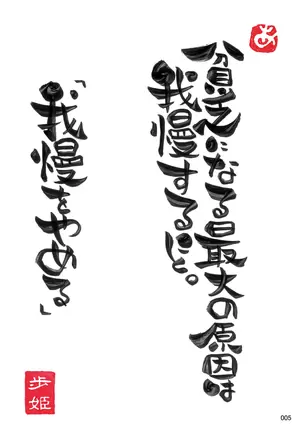 あ
貧乏になる最大の原因は
我慢すること。
「我慢をやめる」
歩姫
005